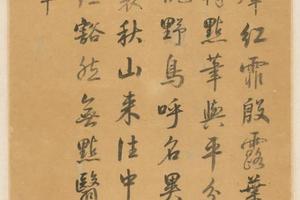 紅霏殷露葉
點筆與平分
野鳥呼名異
秋山来往中
豁然無點翳